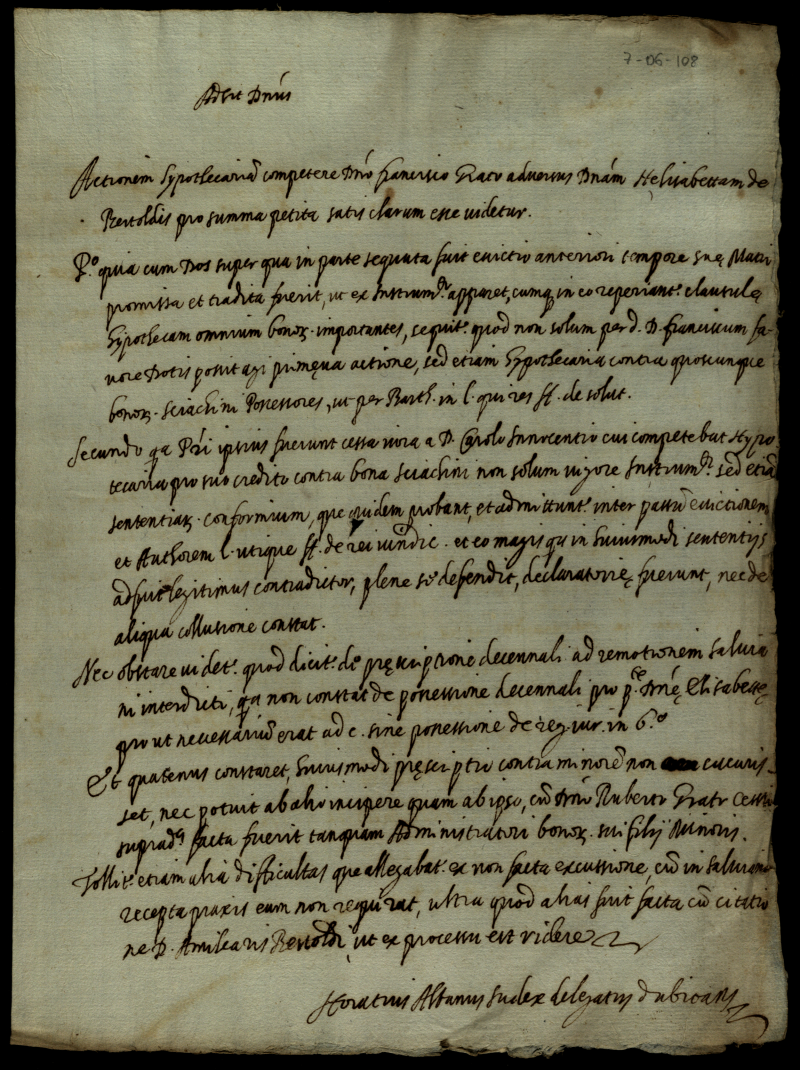 7-06-108
Adsit Dnús
Actionem Hypothecariã competere Dnó Francisco Grato adversus Dnám Helisabettam de
Bertoldis pro summa petita satis clarum esse videtur.
P.º quia cum Dos super qua in parte sequuta fuit evictio anteriori tempore suę Matri
promissa et tradita fuerit, ut ex Instrum.to apparet, cumq; in eo reperiant.r clausulę
Hypothecam omnium bonor. importantes, sequit.r quod non solum per d. D. Franciscum fa-
vore Dotis possit agi primęva actione, sed etiam Hypothecaria contra quoscunque
bonor. Sciachini Possessores, ut per Barth. in l. qui res ff. de solut.
Secundo qa Pri ipsius fuerunt cessa iura a D. Carolo Innocentio cui competebat Hypo
tecaria pro suo credito contra bona Sciachini non solum vigore Instrum.ti sed etiã
sententiar. conformium, que quidem probant, et admittunt.r inter passũ evictionem
et Authorem l. utique ff. de rei vindic. et eo magis qa in huiusmodi sententijs
adfuit legitimus contradictor, plene se defendit, declaratorię fuerunt, nec de
aliqua collusione constat.
Nec obstare videt.r quod dicit.r de pręscriptione decennali ad remotionem salvia
ni interdicti, qa non constat de possessione decennali pro p.te Dnę Elisabettę
prout necessariũ erat ad c. sine possessione de reg. iur. in 6.º
Et quatenus constaret, huiusmodi pręscriptio contra minorẽ non cucuris-
set, nec potuit ab alio incipere quam ab ipso, cũ Dnó Ruberto Grato Cessio
suprad.a facta fuerit tanquam Administratori bonor. sui filij Minoris.
Tollit.r etiam alia difficultas que allegabat.r ex non facta excussione, cũ in salviano
recepta praxis eum non requirat, ultra quod alias fuit facta cũ citatio
ne D. Amilcaris Bertoldi, ut ex processu est videre
Horatius Albanus Iudex delegatus dubitans